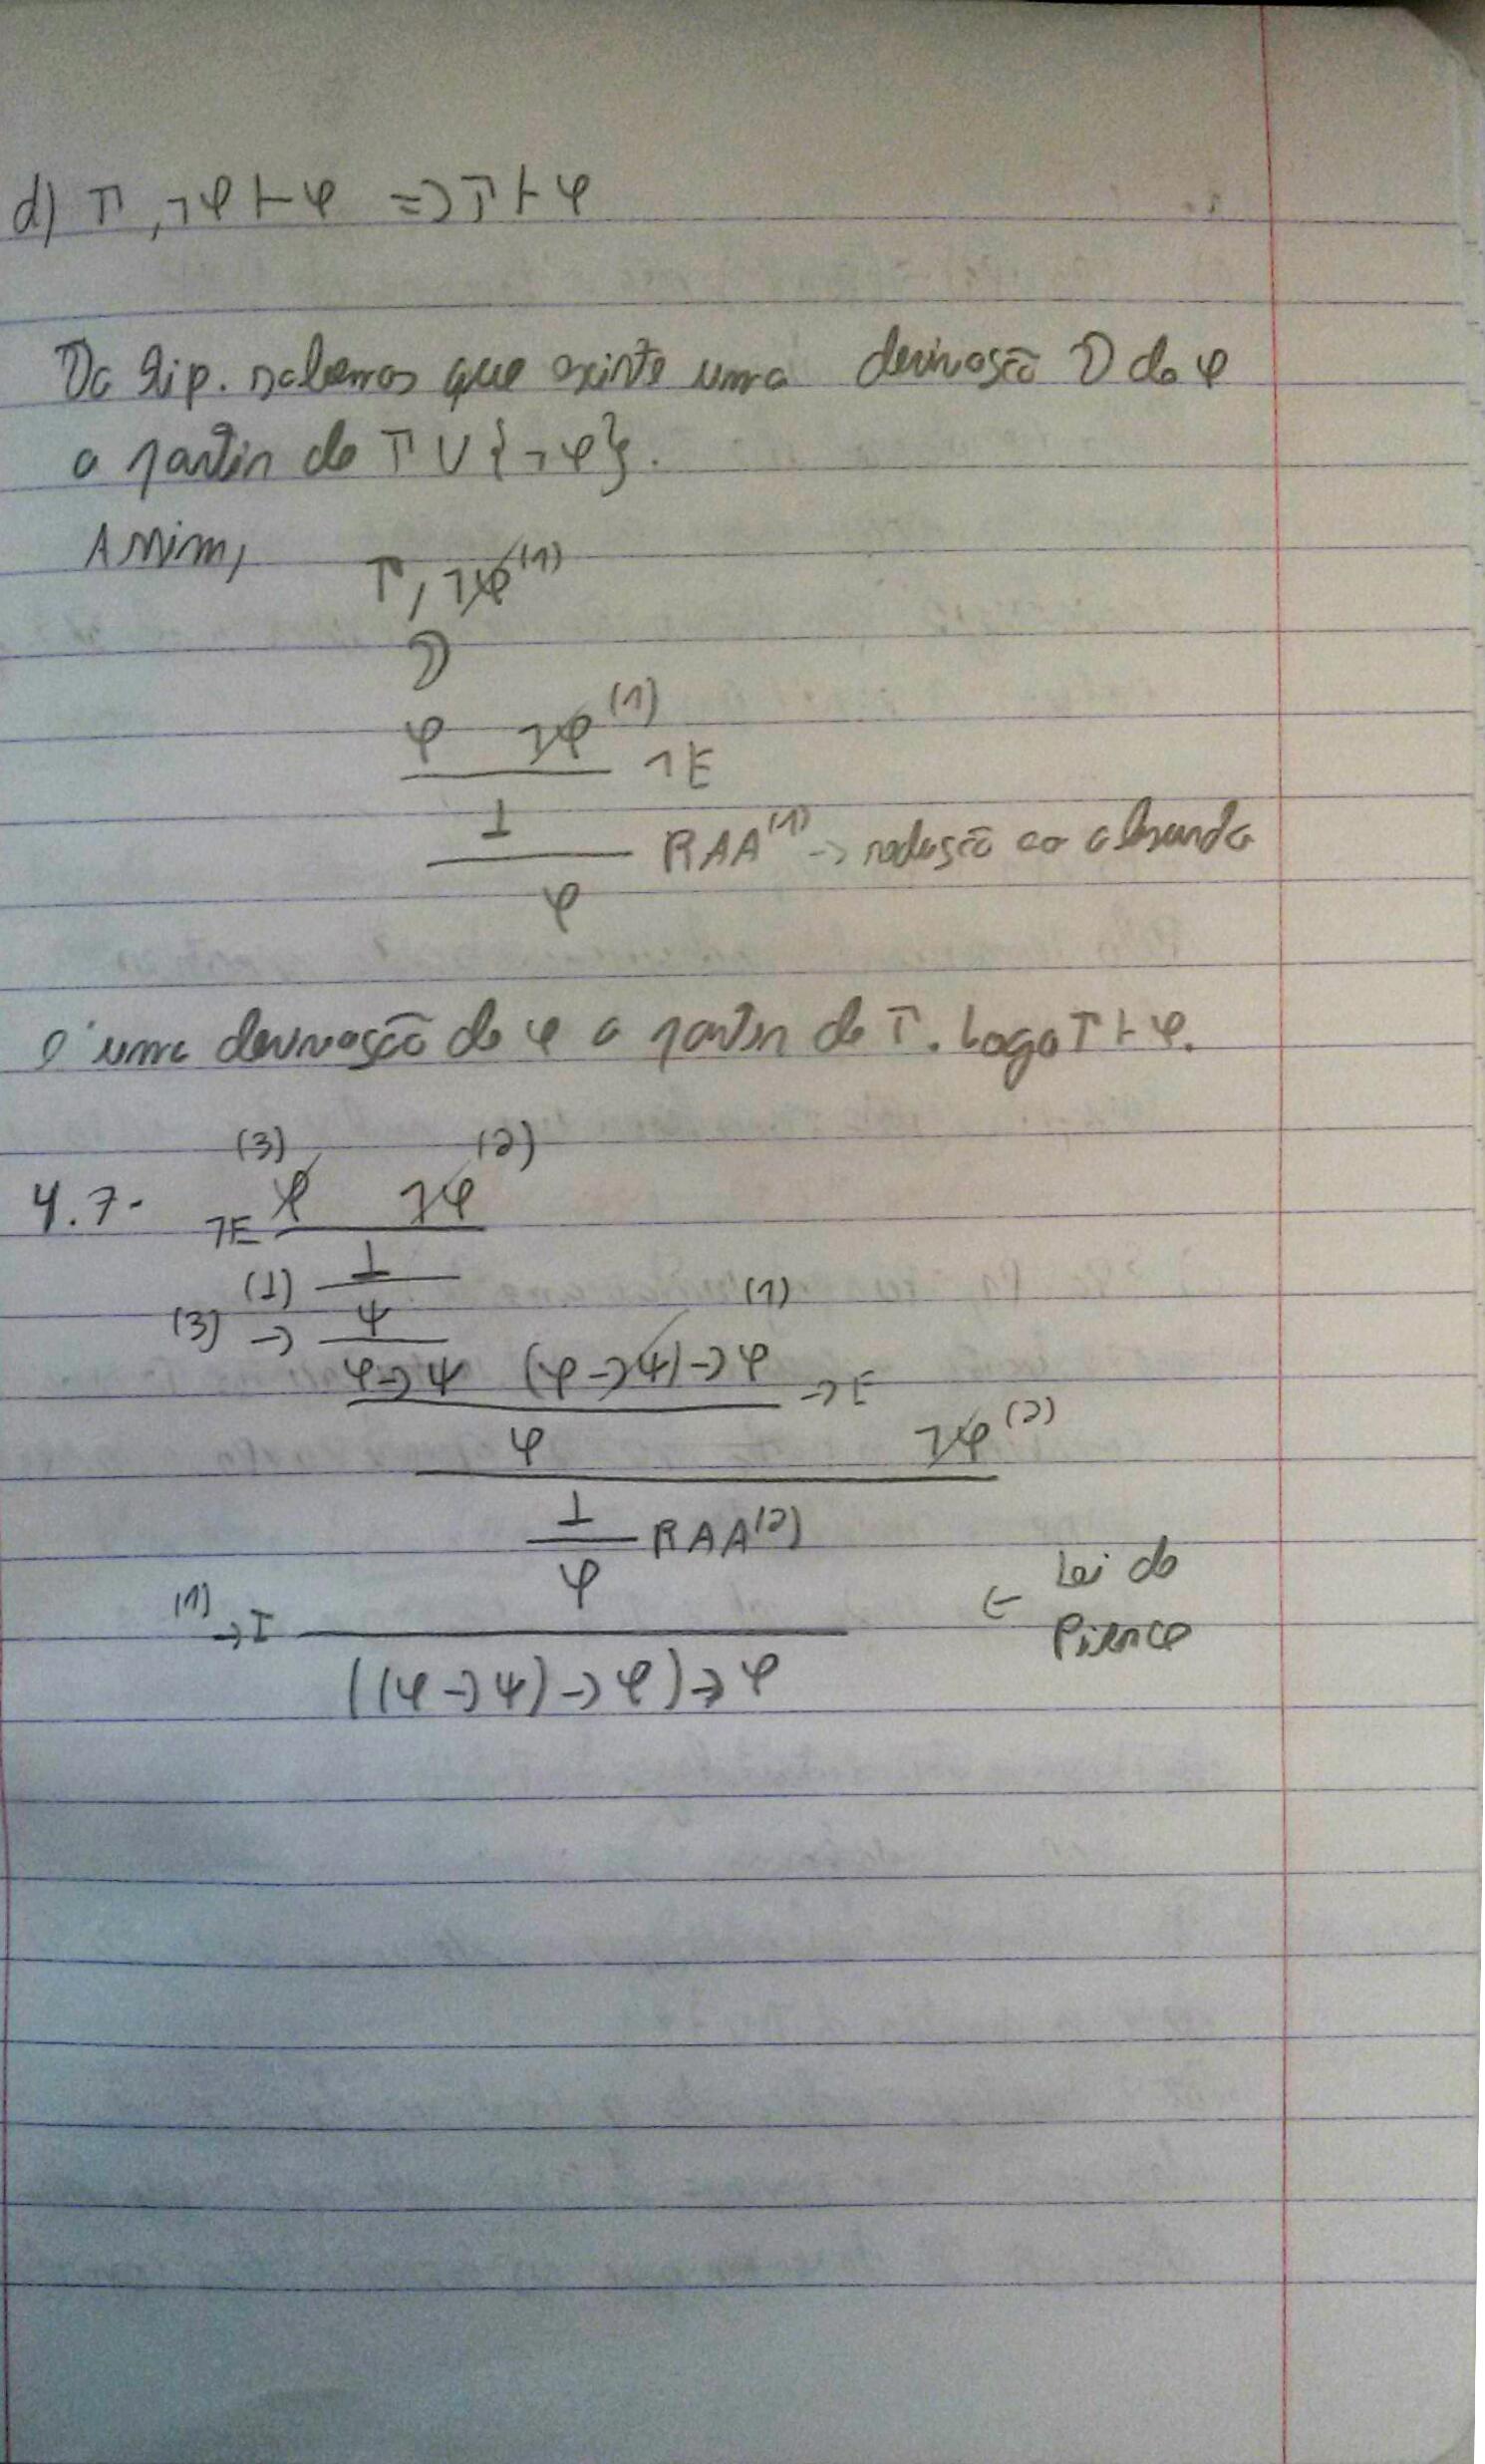 d) Γ, ¬φ ⊢ φ => Γ ⊢ φ
Da hip. sabemos que existe uma derivação D de φ
a partir de Γ ∪ {¬φ}.
Assim,
Γ, ¬φ (1)
D
φ ¬φ (1)
¬E
⊥
RAA (1) -> redução ao absurdo
φ
é uma derivação de φ a partir de Γ. Logo Γ ⊢ φ.
(3) (2)
4.7- ¬E φ ¬φ
(⊥) ⊥
(1)
(3) -> ψ
φ->ψ (φ->ψ)->φ ->E
φ ¬φ (2)
⊥ RAA (2)
φ
(1) ->I <- Lei de Pierce
((φ->ψ)->φ)->φ